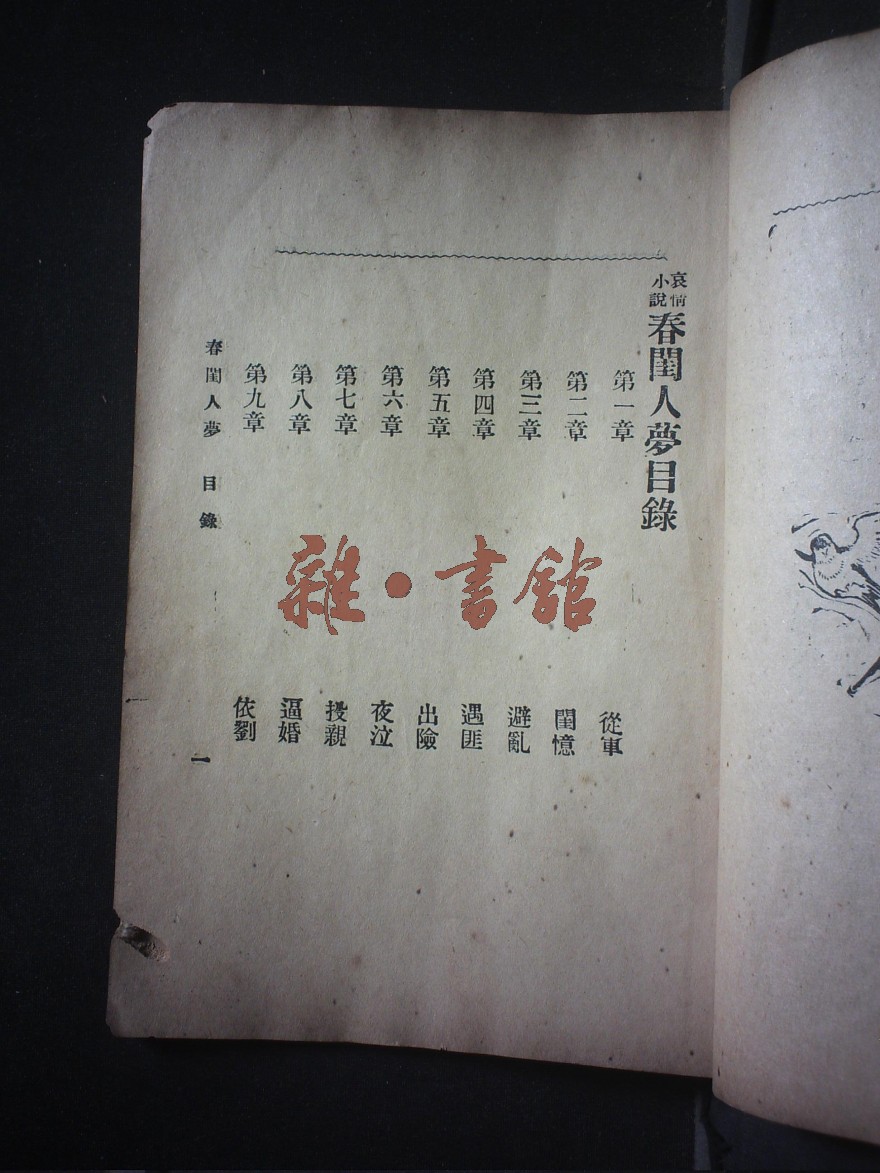 哀情小說 春閨人夢目錄
第一章 從軍
第二章 閨憶
第三章 避亂
第四章 遇匪
第五章 出險
第六章 夜泣
第七章 投親
第八章 逼婚
第九章 依劉
春閨人夢 目錄 一
雜·書館